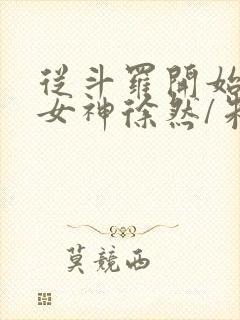 從斗羅開始
女神徐然/朱
莫競西